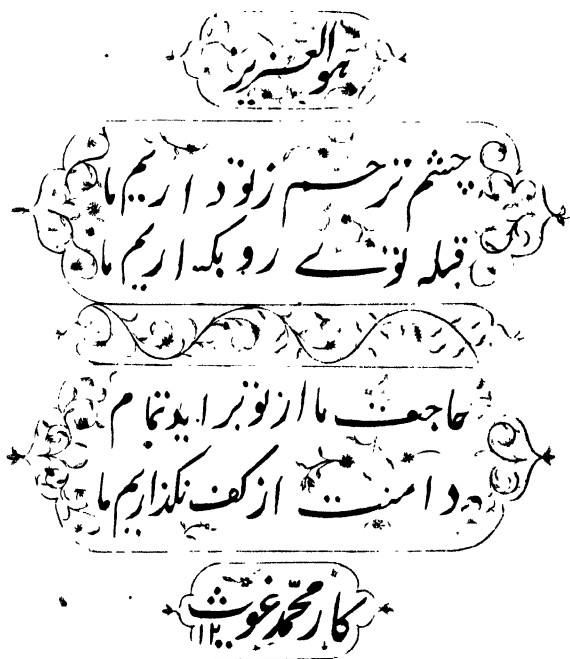 هوالعزیز
چشم ترحم ز تو داریم ما
قبله توئے رو بکه اریم ما
حاجت ما از تو براید تمام
دامنت از کف نگذاریم ما
کار محمد غوث
۱۲